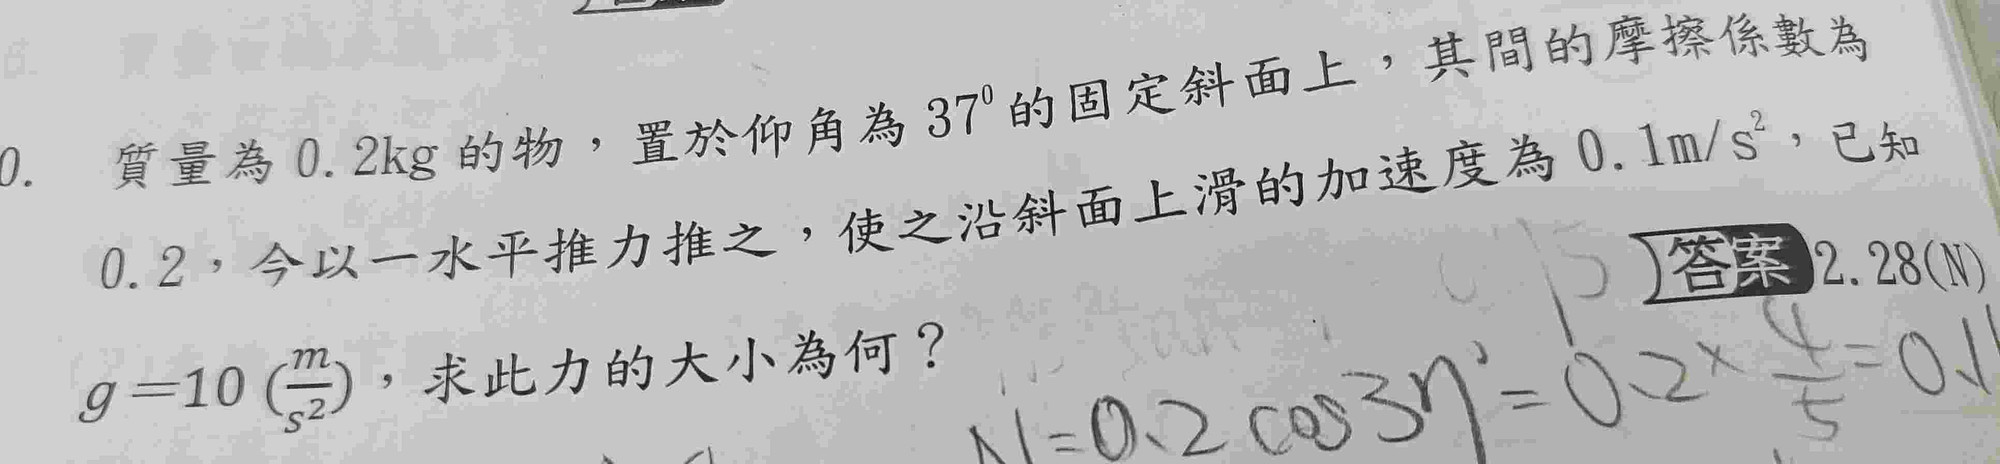 0. 質量為 0.2kg 的物，置於仰角為 37⁰ 的固定斜面上，其間的摩擦係數為
0.2，今以一水平推力推之，使之沿斜面上滑的加速度為 0.1m/s²，已知
g＝10 (m/s²)，求此力的大小為何？
答案 2.28(N)
N=0.2 cos37°=0.2×4/5=0.1